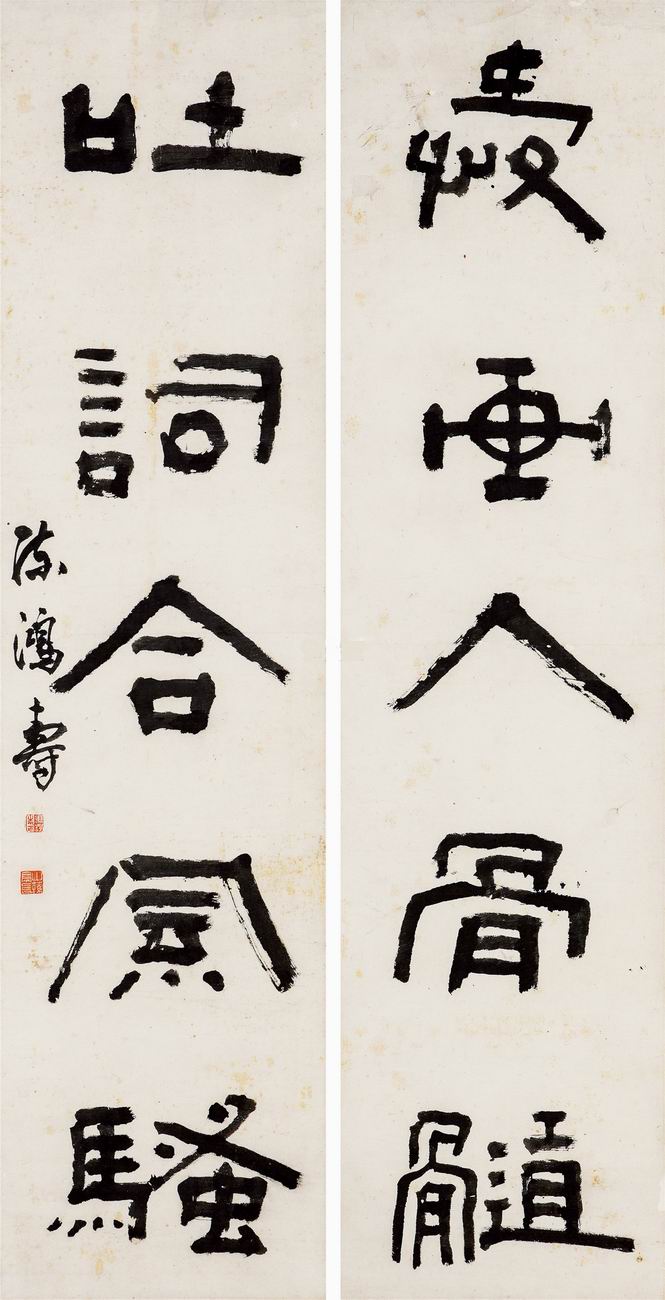 愛画入骨髓
吐詞合風騷
陳鴻壽